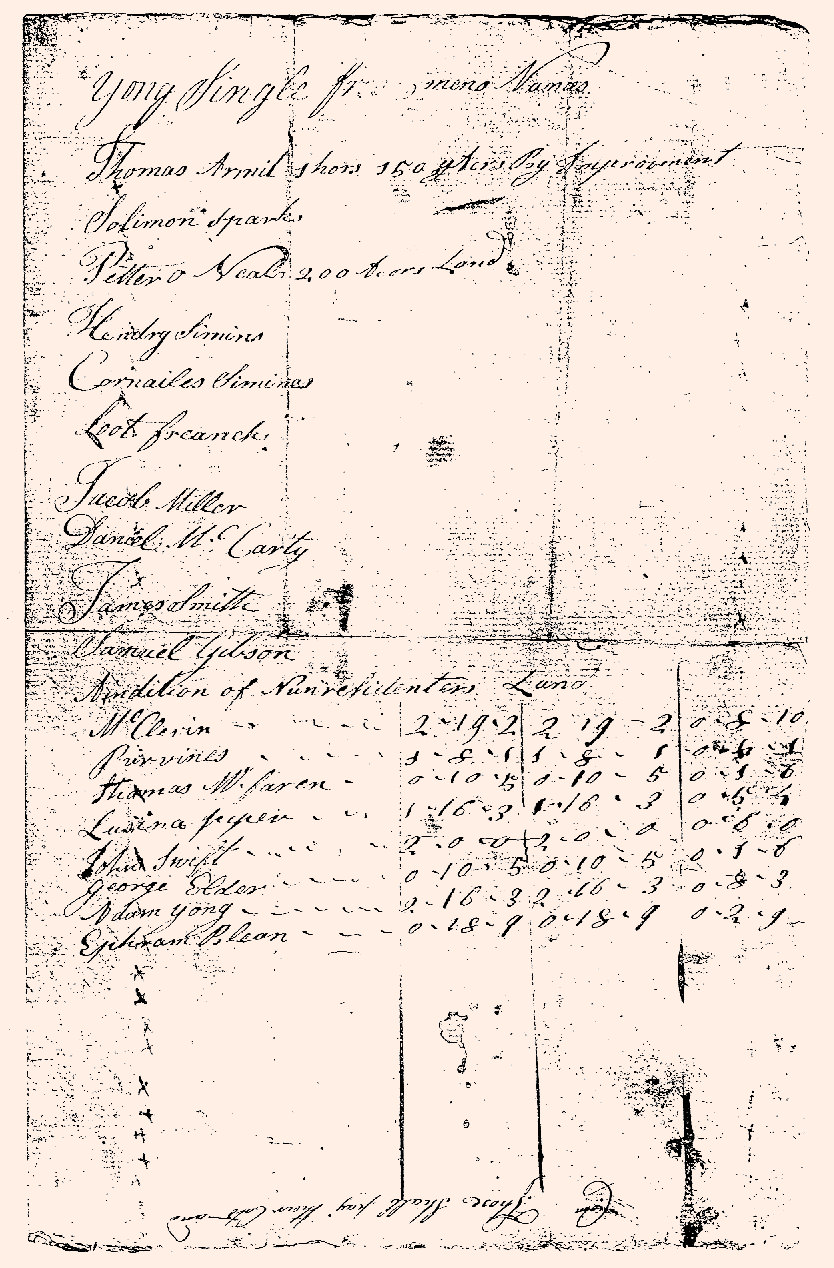 Yong Single fr mens Names
Thomas Armil shors 150 By Improvement
Solimon Sparks
Petter o Neal 200 Acors Land
Hendry Simins
Cornailes Simines
Loot freanch
Jacob Miller
Daniel Mc Carty
James Smith
Samuel Gibson
Andition of Nunresidenters Land
McClerin - - - - 2-19-2 2-19-2 0-8-10
Purvines - - - - 1-8-1 1-8-1
Thomas Mcfaren - 0-10-5 0-10-5 0-1-6
Lusina - - 1-16-3 1-16-3 0-5-
John Swift - - - - 2-0-0 2-0-0 0-6-0
George Elder - - - 0-10-5 0-10-5 0-1-6
Adam yong - - - - 2-16-3 2-16-3 0-8-3
Ephram Blean - - - - 0-18-9 0-18-9 0-2-9
Those Shall pay